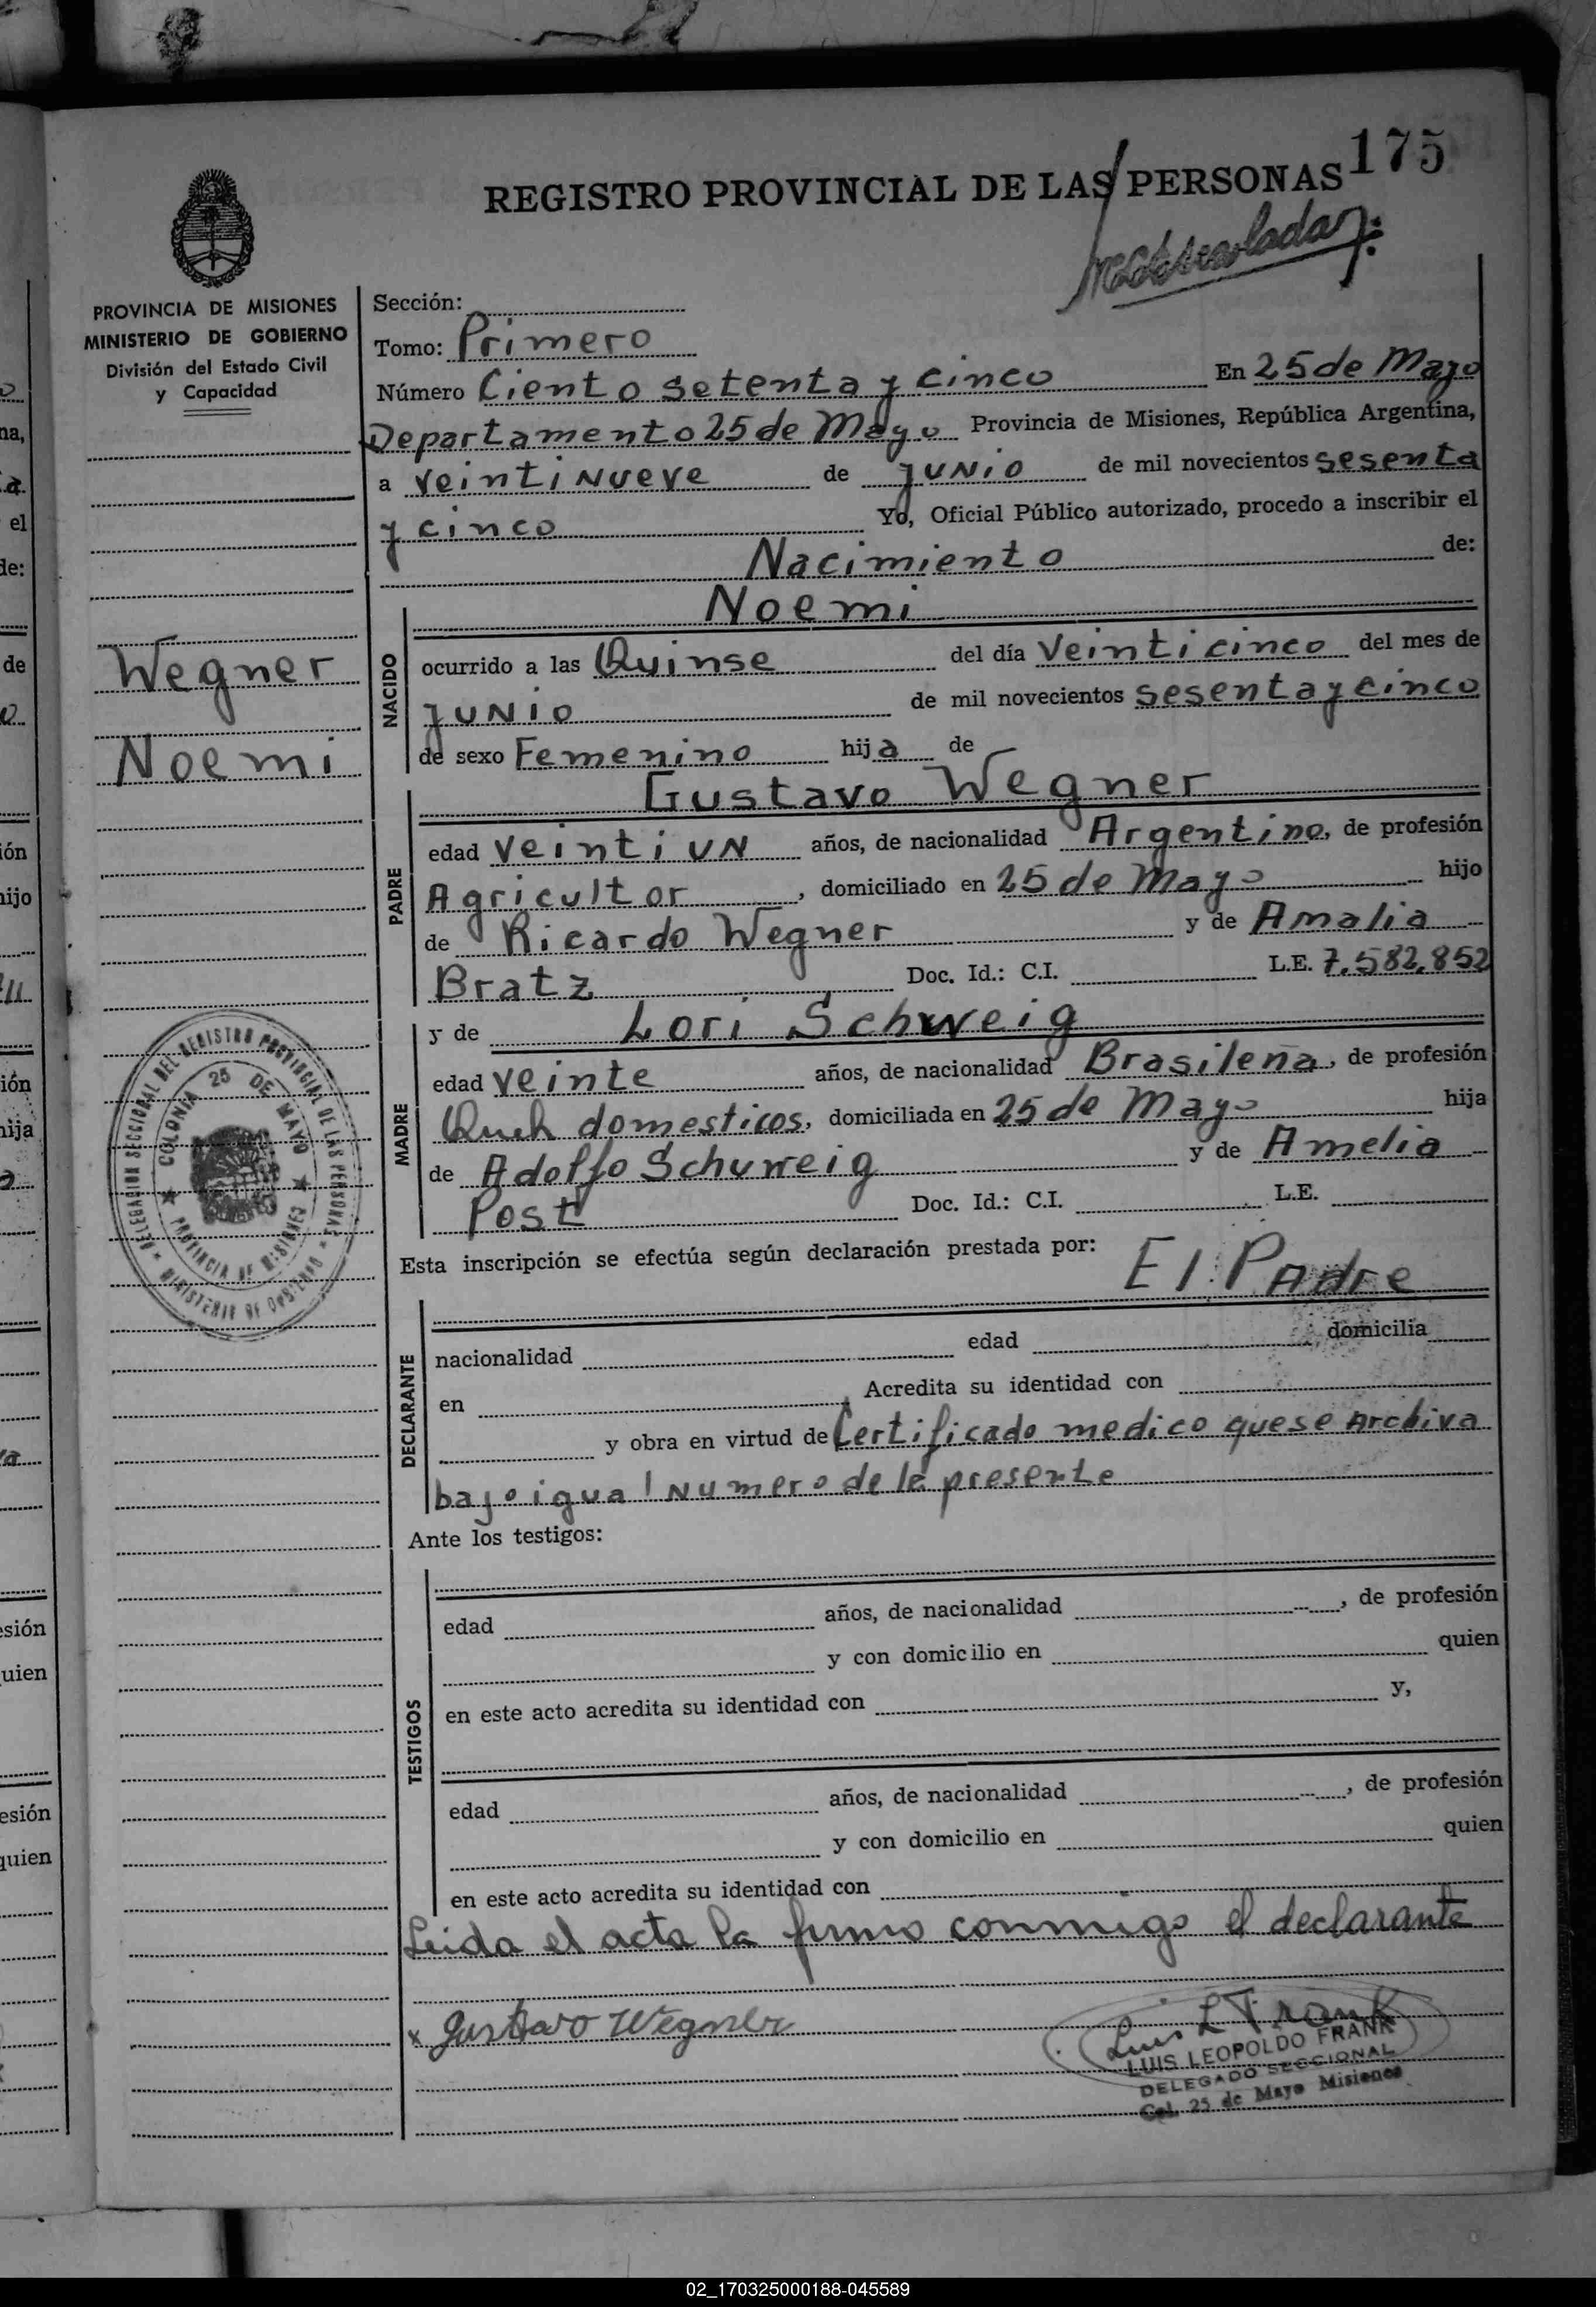 175
REGISTRO PROVINCIAL DE LAS PERSONAS
PROVINCIA DE MISIONES
MINISTERIO DE GOBIERNO
División del Estado Civil
y Capacidad
Wegner
Noemi
DELEGACION SECCIONAL DEL REGISTRO PROVINCIAL DE LAS PERSONAS
MINISTERIO DE GOBIERNO
COLONIA 25 DE MAYO
PROVINCIA DE MISIONES
Sección:
Tomo: Primero
Número Ciento setenta y cinco En 25 de Mayo
Departamento 25 de Mayo Provincia de Misiones, República Argentina,
a veintinueve de junio de mil novecientos sesenta
y cinco Yo, Oficial Público autorizado, procedo a inscribir el
Nacimiento de:
NACIDO
Noemi
ocurrido a las Quinse del día Veinticinco del mes de
junio de mil novecientos sesenta y cinco
de sexo Femenino hija de
PADRE
Gustavo Wegner
edad veintiun años, de nacionalidad Argentino, de profesión
Agricultor, domiciliado en 25 de Mayo hijo
de Ricardo Wegner y de Amalia
Bratz Doc. Id.: C.I. L.E. 7.582.852
MADRE
y de Lori Schweig
edad veinte años, de nacionalidad Brasileña, de profesión
domesticos, domiciliada en 25 de Mayo hija
de Adolfo Schweig y de Amelia
Post Doc. Id.: C.I. L.E.
Esta inscripción se efectúa según declaración prestada por: El Padre
DECLARANTE
nacionalidad edad domicilia
en Acredita su identidad con
y obra en virtud de Certificado medico que se Archiva
bajo igual Numero de la presente
Ante los testigos:
TESTIGOS
edad años, de nacionalidad , de profesión
y con domicilio en quien
en este acto acredita su identidad con y,
edad años, de nacionalidad , de profesión
y con domicilio en quien
en este acto acredita su identidad con
Leida el acta la firma conmigo el declarante
x Gustavo Wegner
Luis L Frank
LUIS LEOPOLDO FRANK
DELEGADO SECCIONAL
Col. 25 de Mayo Misiones
02_170325000188-045589